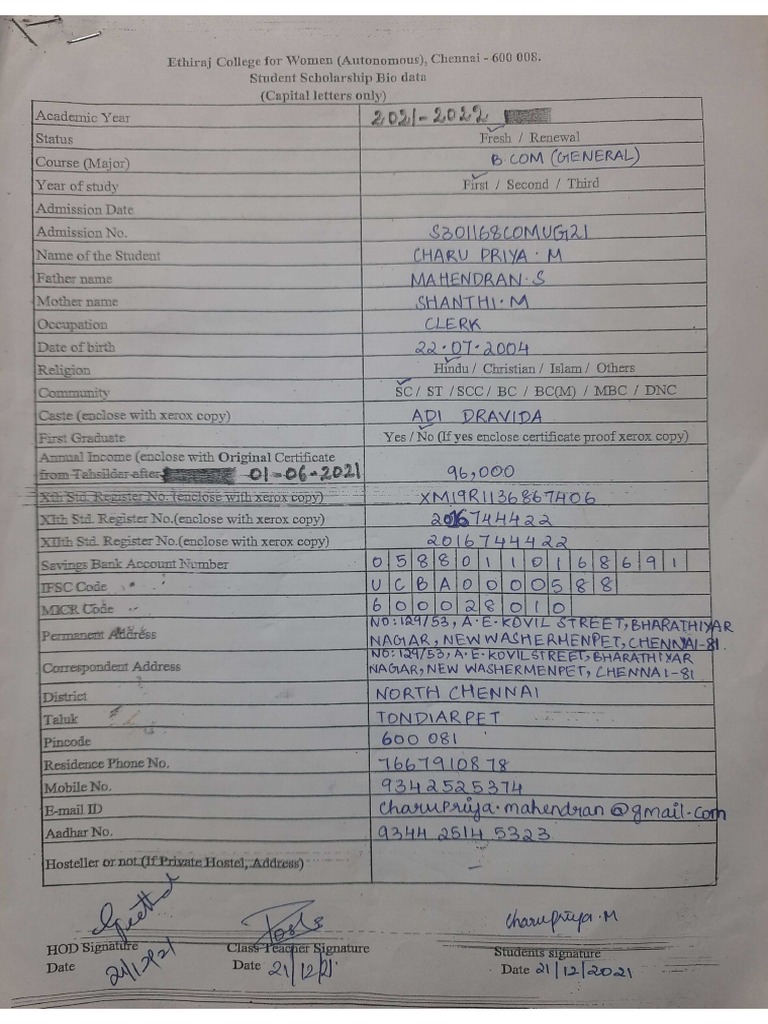 Ethiraj College for Women (Autonomous), Chennai - 600 008.
Student Scholarship Bio data
(Capital letters only)
Academic Year 2021-2022
Status Fresh / Renewal
Course (Major) B.COM (GENERAL)
Year of study First / Second / Third
Admission Date
Admission No. S301168COMUG21
Name of the Student CHARU PRIYA.M
Father name MAHENDRAN.S
Mother name SHANTHI.M
Occupation CLERK
Date of birth 22.07.2004
Religion Hindu / Christian / Islam / Others
Community SC / ST / SCC / BC / BC(M) / MBC / DNC
Caste (enclose with xerox copy) ADI DRAVIDA
First Graduate Yes / No (If yes enclose certificate proof xerox copy)
Annual Income (enclose with Original Certificate
from Tahsildar after 01-06-2021 96,000
Xth Std. Register No. (enclose with xerox copy) XM19R1136867406
XIth Std. Register No.(enclose with xerox copy) 2016744422
XIIth Std. Register No.(enclose with xerox copy) 2016744422
Savings Bank Account Number 05880110168691
IFSC Code UCBA0000588
MICR Code 600028010
Permanent Address NO:129/53, A.E.KOVIL STREET, BHARATHIYAR
NAGAR, NEW WASHERMENPET, CHENNAI-81.
Correspondent Address NO:129/53, A.E.KOVIL STREET, BHARATHIYAR
NAGAR, NEW WASHERMENPET, CHENNAI-81
District NORTH CHENNAI
Taluk TONDIARPET
Pincode 600 081
Residence Phone No. 7667910878
Mobile No. 9342525374
E-mail ID charupriya.mahendran@gmail.com
Aadhar No. 9344 2514 5323
Hosteller or not (If Private Hostel, Address) -
CharuPriya.M
HOD Signature Class Teacher Signature Students signature
Date 21/12/21 Date 21/12/21. Date 21/12/2021